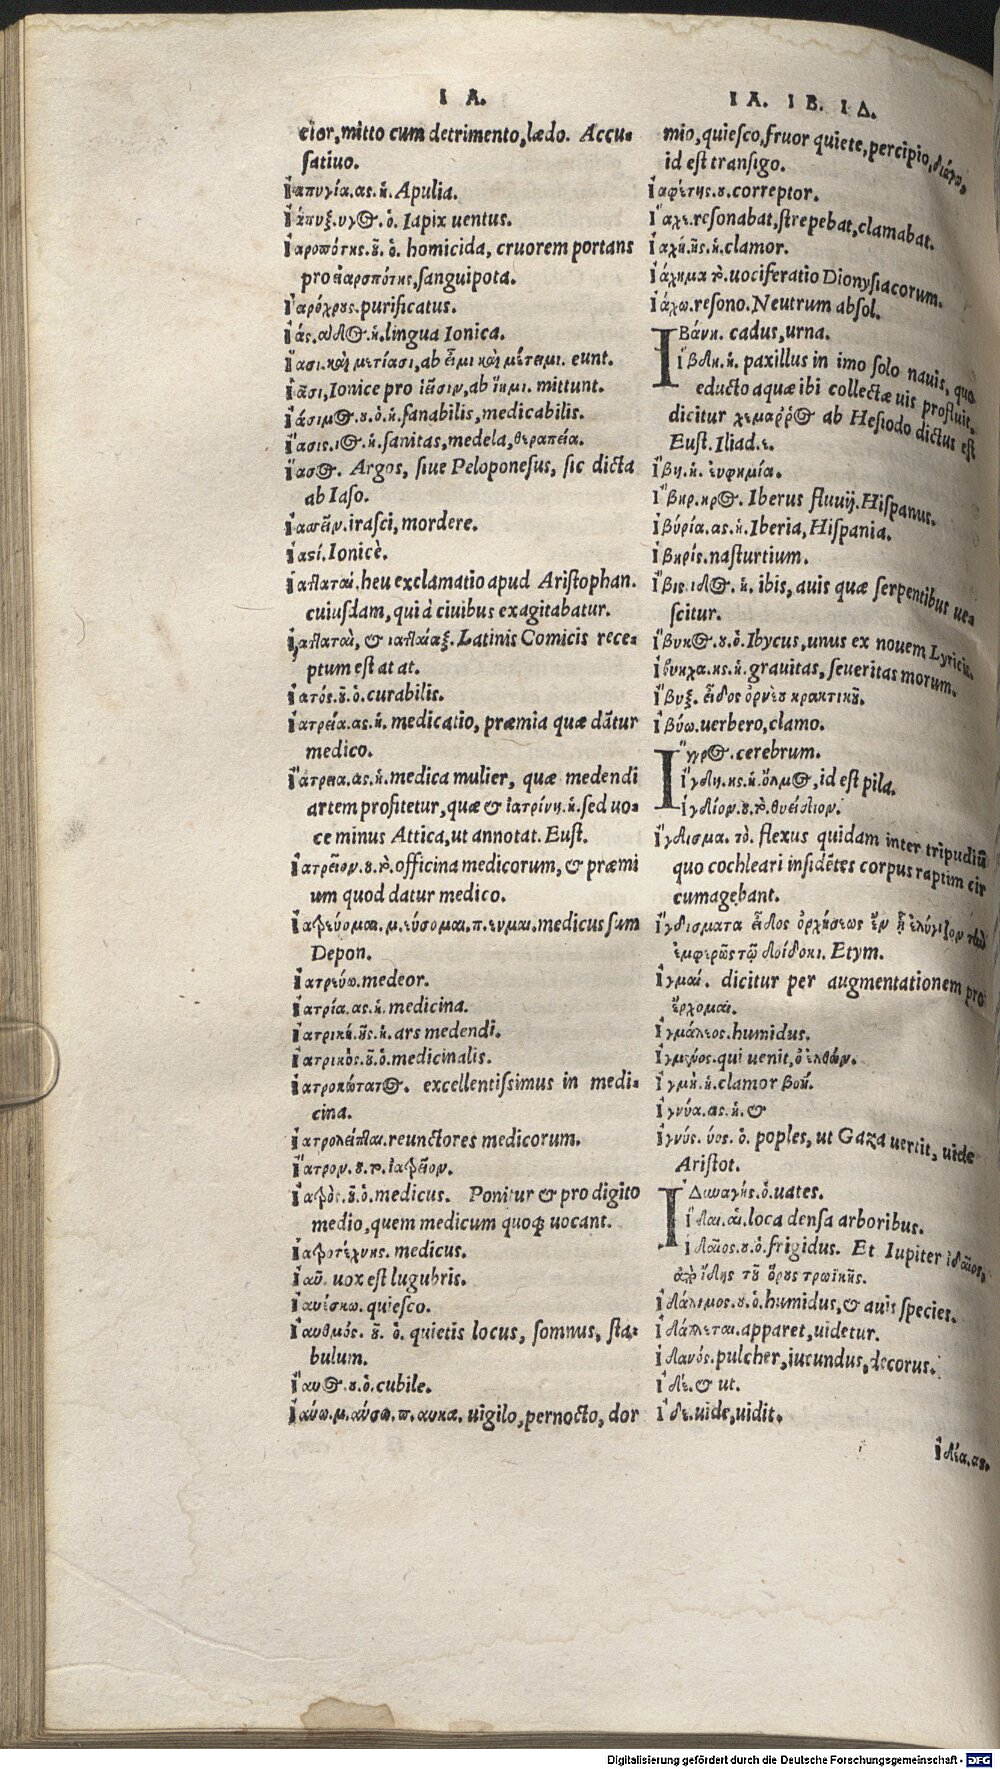 Ι Α.
cior, mitto cum detrimento, lædo. Accu-
satiuo.
ἰαπυγία. ας. ἡ. Apulia.
ἰάπυξ. υγος. ὁ. Iapix uentus.
ἰαροπότης. ου. ὁ. homicida, cruorem portans
pro ἐιαροπότης, sanguipota.
purificatus.
ἰάς. άδος. ἡ. lingua Ionica.
ἴασι. καὶ μετίασι, ab εἶμι καὶ μέτειμι. eunt.
ἰᾶσι, Ionice pro ἱᾶσιν, ab ἵημι. mittunt.
ἰάσιμος. ου. ὁ. ἡ. sanabilis, medicabilis.
ἴασις. ιος. ἡ. sanitas, medela, θεραπεία.
ἴασος. Argos, siue Peloponesus, sic dicta
ab Iaso.
irasci, mordere.
ἰαστί. Ionicè.
ἰατταταί. heu exclamatio apud Aristophan.
cuiusdam, qui à ciuibus exagitabatur.
ἰατταταὶ, & ἰατταιάξ. Latinis Comicis rece-
ptum est at at.
ἰατός. οῦ. ὁ. curabilis.
ἰατρεία. ας. ἡ. medicatio, præmia quæ dãtur
medico.
ἰάτρεια. ας. ἡ. medica mulier, quæ medendi
artem profitetur, quæ & ἰατρίνη. ἡ. sed uo-
ce minus Attica, ut annotat. Eust.
ἰατρεῖον. ου. τὸ. officina medicorum, & præmi
um quod datur medico.
ἰατρεύομαι. μ. εύσομαι. π. ευμαι. medicus sum
Depon.
ἰατρεύω. medeor.
ἰατρία. ας. ἡ. medicina.
ἰατρική. ῆς. ἡ. ars medendi.
ἰατρικὸς. οῦ. ὁ. medicinalis.
ἰατρωκώτατος. excellentissimus in medi-
cina.
ἰατρολεῖπται. reunctores medicorum.
ἴατρον. ου. τὸ. ἰατρεῖον.
ἰατρὸς. οῦ. ὁ. medicus. Ponitur & pro digito
medio, quem medicum quoque uocant.
ἰατροτέχνης. medicus.
ἰαῦ. uox est lugubris.
ἰαυίσκω. quiesco.
ἰαυθμός. οῦ. ὁ. quietis locus, somnus, sta-
bulum.
ἴαυος. ου. ὁ. cubile.
ἰαύω. μ. αύσω. π. αυκα. uigilo, pernocto, dor
Ι Α. Ι Β. Ι Δ.
mio, quiesco, fruor quiete, percipio, διάγω,
id est transigo.
ἰαφέτης. ου. correptor.
ἴαχε. resonabat, strepebat, clamabat.
ἰαχή. ῆς. ἡ. clamor.
ἰάχημα τὸ. uociferatio Dionysiacorum.
ἰάχω. resono. Neutrum absol.
ΙΒάνη. cadus, urna.
ἴβδη. ἡ. paxillus in imo solo nauis, quo
educto aquæ ibi collectæ uis profluit,
dicitur χείμαῤῥος ab Hesiodo dictus est
Eust. Iliad. ε.
ἴβη. ἡ. ἐυφημία.
ἴβηρ. ηρος. Iberus fluuij. Hispanus.
ἰβύρία. ας. ἡ. Iberia, Hispania.
ἰβηρίς. nasturtium.
ἴβις. ιδος. ἡ. ibis, auis quæ serpentibus ue-
scitur.
ἴβυκος. ου. ὁ. Ibycus, unus ex nouem Lyricis.
grauitas, seueritas morum.
ἴβυξ. εἶδος ὀρνέου κρακτικοῦ.
ἰβύω. uerbero, clamo.
Ἴγγρος. cerebrum.
ἴγδη. ης. ἡ. ὅλμος, id est pila.
ἰγδίον. ου. τὸ. θυείδιον.
ἴγδισμα. τὸ. flexus quidam inter tripudiũ
quo cochleari insidẽtes corpus raptim cir
cumagebant.
ἰγδίσματα εἶδος ὀρχήσεως ἐν ᾗ ἐλύγιζον τὴν
ἐμφερῶς τῷ δοίδυκι. Etym.
ἴγμαι. dicitur per augmentationem pro
ἔρχομαι.
ἰγμάλεος. humidus.
ἰγμένος. qui uenit, ὁ ἐλθών.
ἰγμή. ἡ. clamor βοή.
ἰγνύα. ας. ἡ. &
ἰγνύς. ύος. ὁ. poples, ut Gaza uertit, uide
Aristot.
ΙΔαναγής. ὁ. uates.
ἴδαι. αἱ. loca densa arboribus.
ἰδαῖος. ου. ὁ. frigidus. Et Iupiter ἰδαῖος,
ἀπὸ ἴδης τοῦ ὄρους τρωϊκῆς.
ἰδάλιμος. ου. ὁ. humidus, & auis species.
ἰδάλλεται. apparet, uidetur.
ἰδανός. pulcher, iucundus, decorus.
ἰδέ. & ut.
ἴδε. uide, uidit.
ἰδέα. ας.
Digitalisierung gefördert durch die Deutsche Forschungsgemeinschaft - DFG